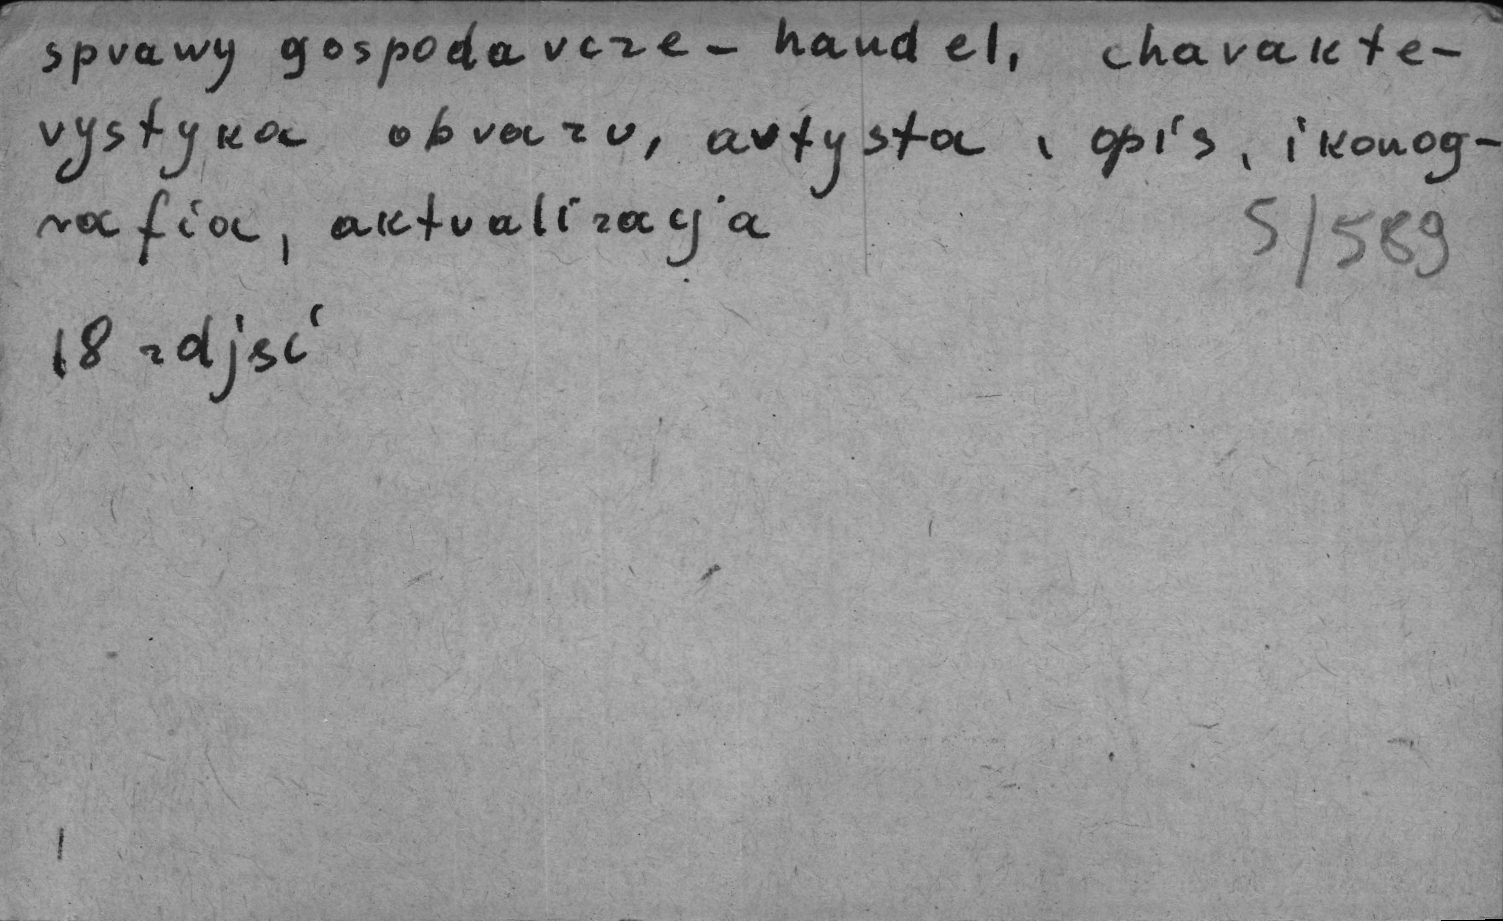 sprawy gospodarcze - handel, charakte-
rystyka obrazu, artysta, opis, ikonog-
rafia, aktualizacja
5/589
18 zdjęć